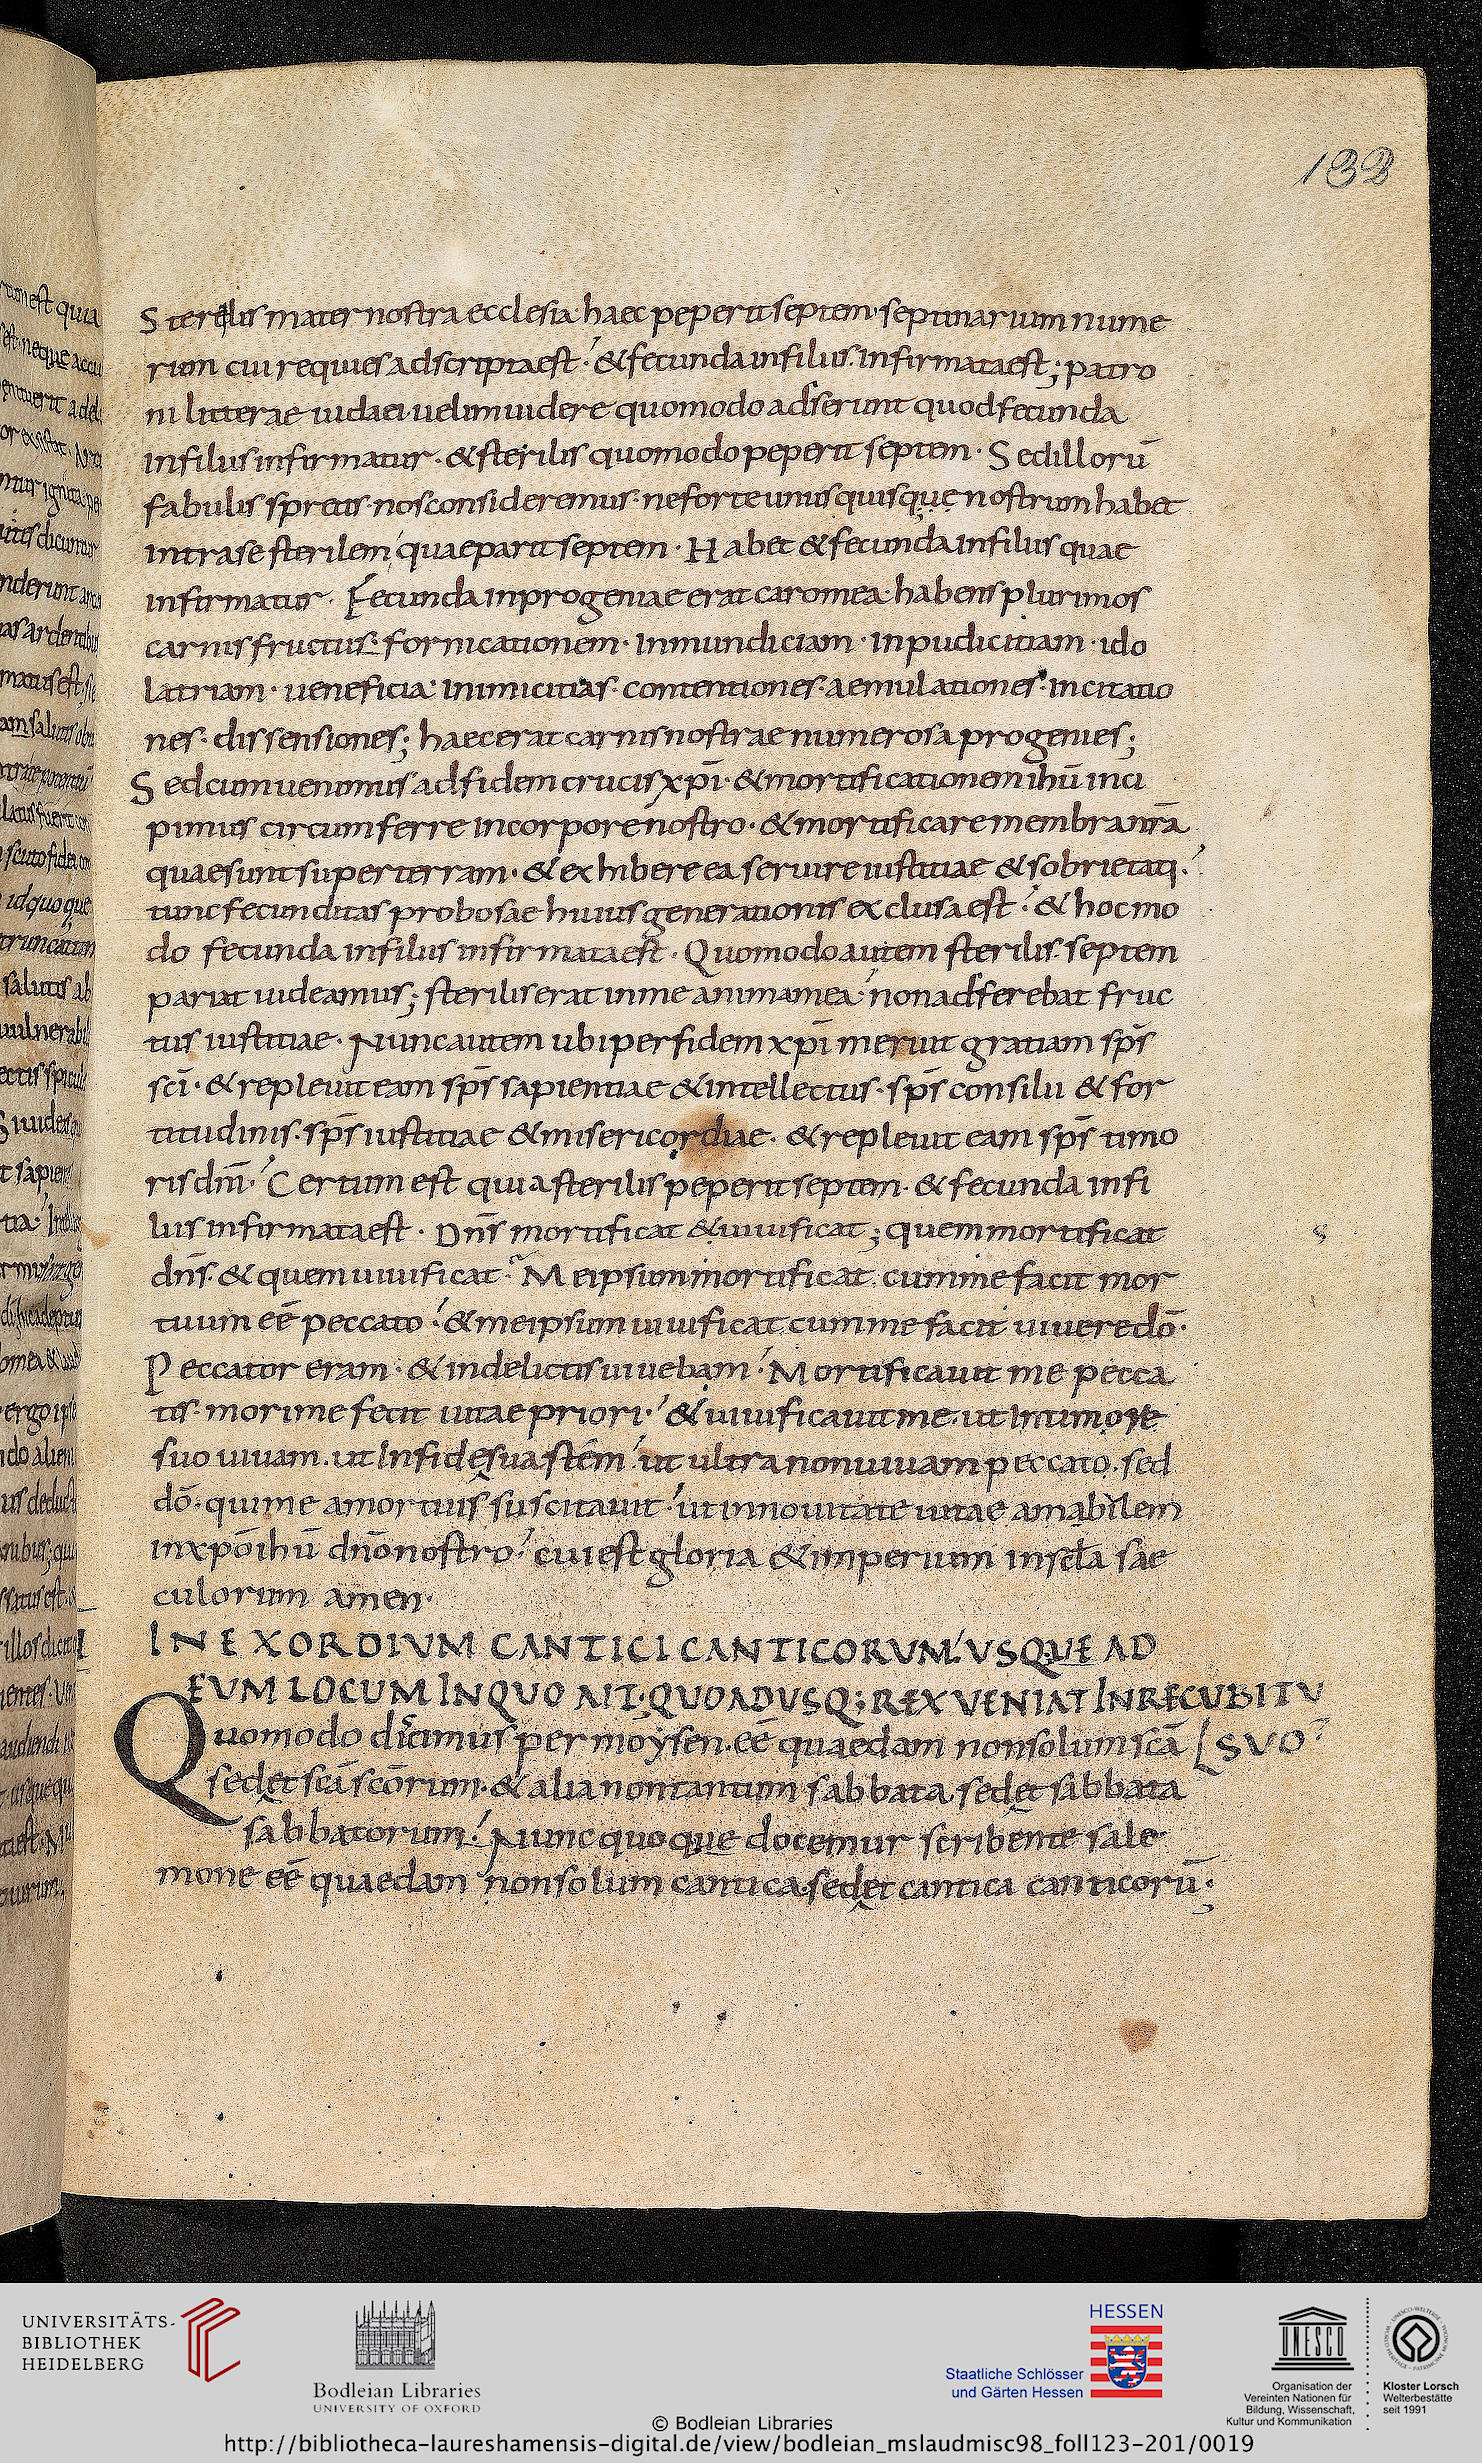 132
Sterelis mater nostra ecclesia· haec peperit septem· septinarium nume
rum cui requies adscripta est· & fecunda in filiis infirmata est; patro
ni litterae iudaei uelim uidere quomodo adserunt quod fecunda
in filiis infirmatur· & sterilis quomodo peperit septem· Sed illorū
fabulis spretis· nos consideremus· ne forte unusquisque nostrum habet
intra se sterilem quae parit septem· Habet & fecunda in filiis quae
infirmatur· Fecunda in progeniae erat caro mea· habens plurimos
carnis fructus· fornicationem· inmundiciam· inpudicitiam· ido
latriam· ueneficia· inimicitias· contentiones· aemulationes· incitatio
nes· dissensiones; haec erat carnis nostrae numerosa progenies;
Sed cum uenimus ad fidem crucis xp̄i· & mortificationem ihū inci
pimus circumferre in corpore nostro· & mortificare membra nr̄a
quae sunt super terram· & exhibere ea seruire iustitiae & sobrietati·
tunc fecunditas probosae huius generationis exclusa est· & hoc mo
do fecunda in filiis infirmata est· Quomodo autem sterilis septem
pariat uideamus; sterilis erat in me anima mea· non adferebat fruc
tus iustitiae· Nunc autem ubi per fidem xp̄i meruit gratiam sp̄s
sc̄i· & repleuit eam sp̄s sapientiae & intellectus· sp̄s consilii & for
titudinis· sp̄s iustitiae & misericordiae· & repleuit eam sp̄s timo
ris dn̄i· Certum est quia sterilis peperit septem· & fecunda in fi
liis infirmata est· Dn̄s mortificat & uiuificat; quem mortificat
dn̄s· & quem uiuificat· Me ipsum mortificat cum me facit mor
tuum eē peccato· & me ipsum uiuificat cum me facit uiuere dō·
Peccator eram· & in delictis uiuebam· Mortificauit me pecca
tis· mori me fecit uitae priori· & uiuificauit me· ut in timore
suo uiuam· ut in fide sua stem· ut ultra non uiuam peccato· sed
dō· qui me a mortuis suscitauit· ut in nouitate uitae amabilem
in xpō ihū dnō nostro· cui est gloria & imperium in sc̄la sae
culorum amen·
IN EXORDIUM CANTICI CANTICORUM· USQUE AD
EUM LOCUM IN QUO AIT· QUOADUSQ; REX VENIAT IN RECUBITU
Quomodo dicimus per moysen· eē quaedam non solum scā [SUO·
sed et scā scōrum· & alia non tantum sabbata sed et sabbata
sabbatorum· Nunc quoque docemur scribente sale
mone eē quaedam non solum cantica sed et cantica canticorū·
UNIVERSITÄTS-
BIBLIOTHEK
HEIDELBERG
Bodleian Libraries
UNIVERSITY OF OXFORD
HESSEN
Staatliche Schlösser
und Gärten Hessen
UNESCO
Organisation der
Vereinten Nationen für
Bildung, Wissenschaft,
Kultur und Kommunikation
Kloster Lorsch
Welterbestätte
seit 1991
© Bodleian Libraries
http://bibliotheca-laureshamensis-digital.de/view/bodleian_mslaudmisc98_foll123-201/0019